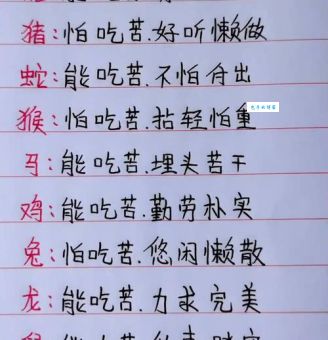 猪:怕吃苦.好听懒做
蛇:能吃苦.不怕付出
猴:怕吃苦.拈轻怕重
马:能吃苦.埋头苦干
鸡:能吃苦.勤劳朴实
兔:怕吃苦.悠闲懒散
龙:能吃苦.力求完美